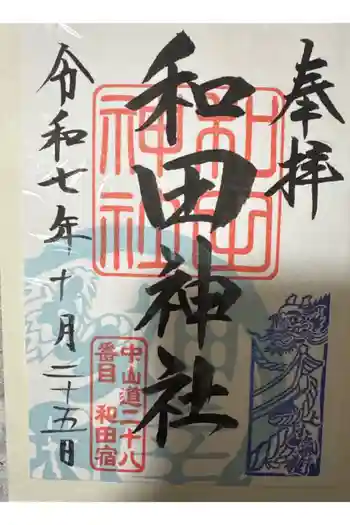 奉拝
和田神社
和田神社
中山道二十八
番目 和田宿
令和七年十月二十五日